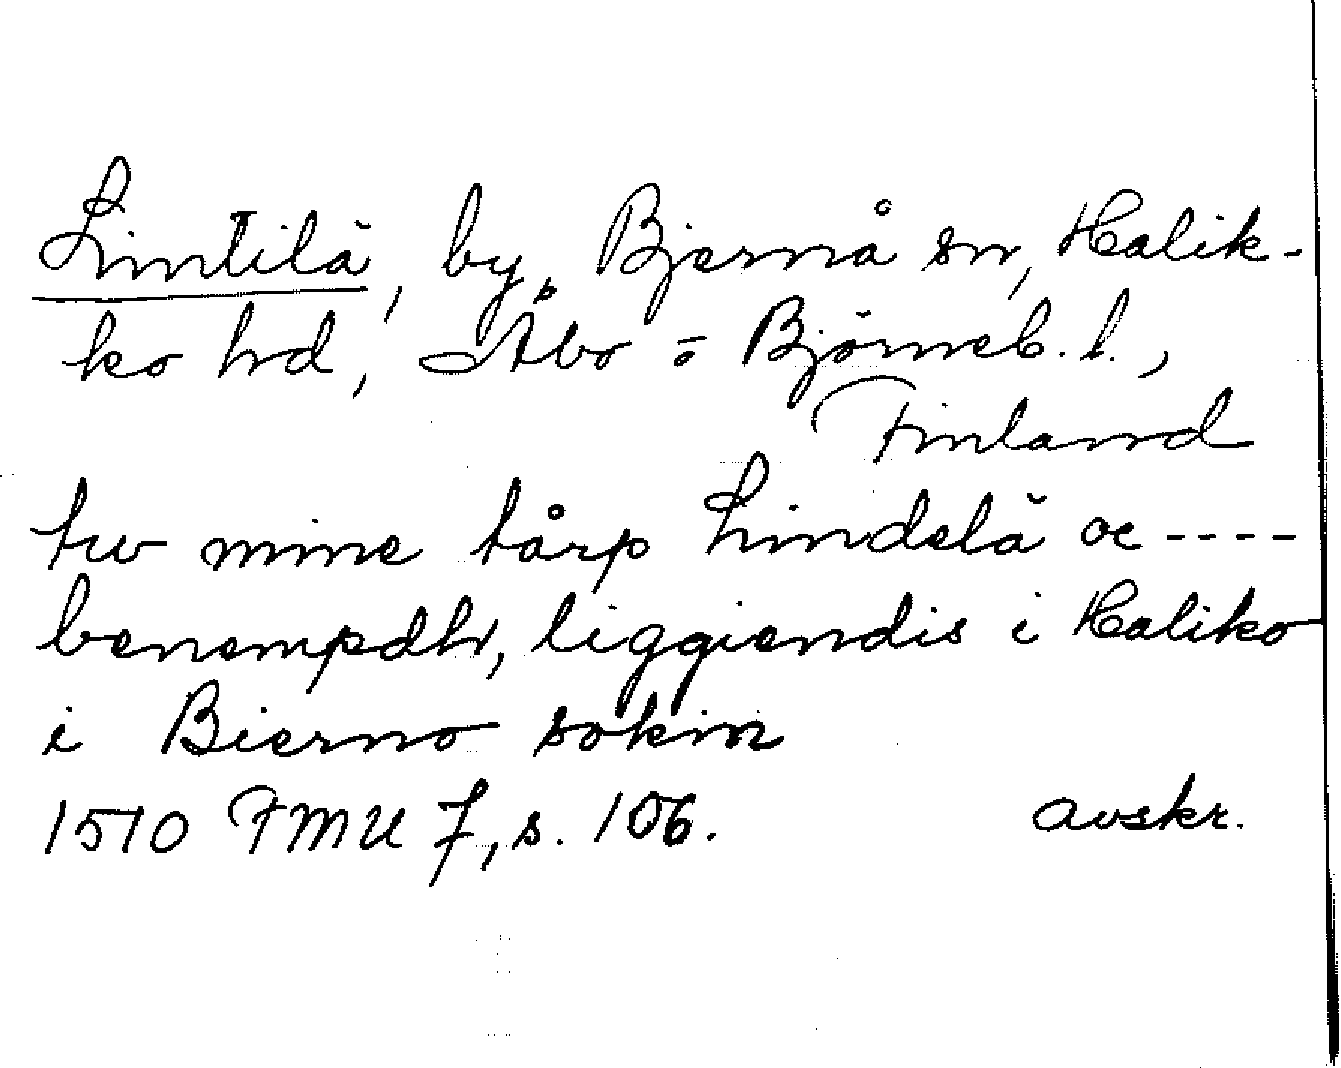 Lintilä, by, Bjernå sn, Halik-
ko hd, Åbo o Björneb. l.,
Finland
tw mine tårp Lindelä oc ----
benempdh, liggiendis i Haliko
i Bierno sokin
1510 FMU 7, s. 106. avskr.